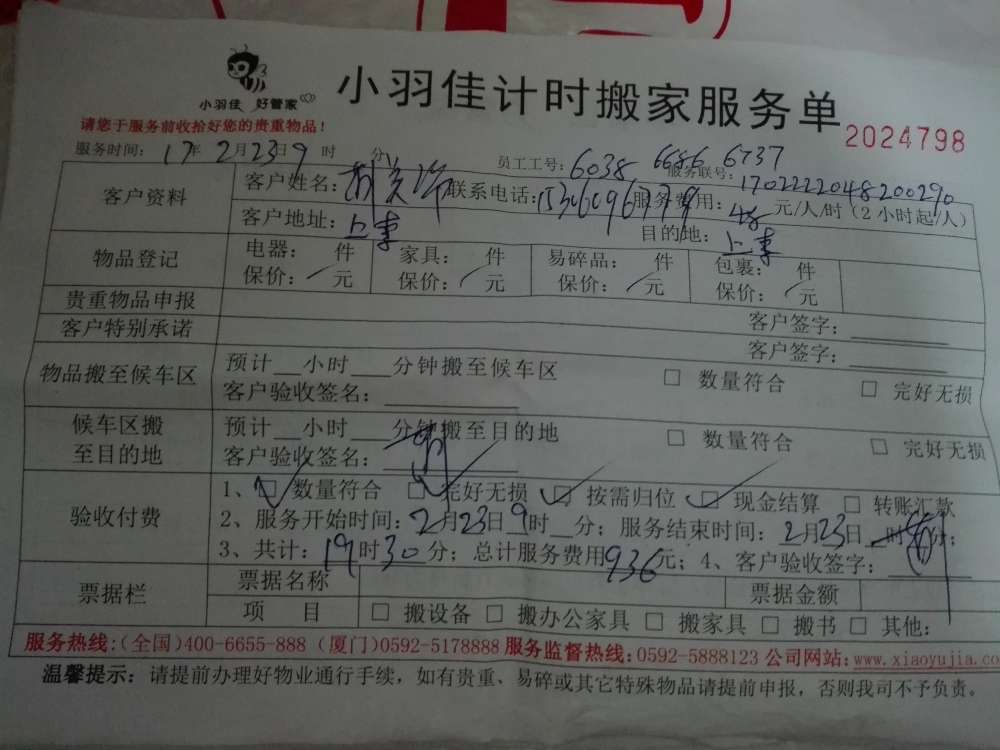 小羽佳 好管家
小羽佳计时搬家服务单
请您于服务前收拾好您的贵重物品！
2024798
服务时间：17年2月23日9时 分
员工工号：6038 6686 6737
服务联号：1702222048200290
客户资料
客户姓名： 联系电话： 服务费用：48元/人/时（2小时起/人）
客户地址： 目的地：
物品登记
电器： 件 家具： 件 易碎品： 件 包裹： 件
保价： 元 保价： 元 保价： 元 保价： 元
贵重物品申报
客户签字：
客户特别承诺
客户签字：
物品搬至候车区
预计 小时 分钟搬至候车区 □ 数量符合 □ 完好无损
客户验收签名：
候车区搬
至目的地
预计 小时 分钟搬至目的地 □ 数量符合 □ 完好无损
客户验收签名：
验收付费
1、□ 数量符合 □ 完好无损 □ 按需归位 □ 现金结算 □ 转账汇款
2、服务开始时间：2月23日9时 分；服务结束时间：2月23日 时 分；
3、共计：19时30分；总计服务费用936元；4、客户验收签字：
票据栏
票据名称 票据金额
项 目 □ 搬设备 □ 搬办公家具 □ 搬家具 □ 搬书 □ 其他：
服务热线：（全国）400-6655-888（厦门）0592-5178888 服务监督热线：0592-5888123 公司网站：www.xiaoyujia.co
温馨提示：请提前办理好物业通行手续，如有贵重、易碎或其它特殊物品请提前申报，否则我司不予负责。